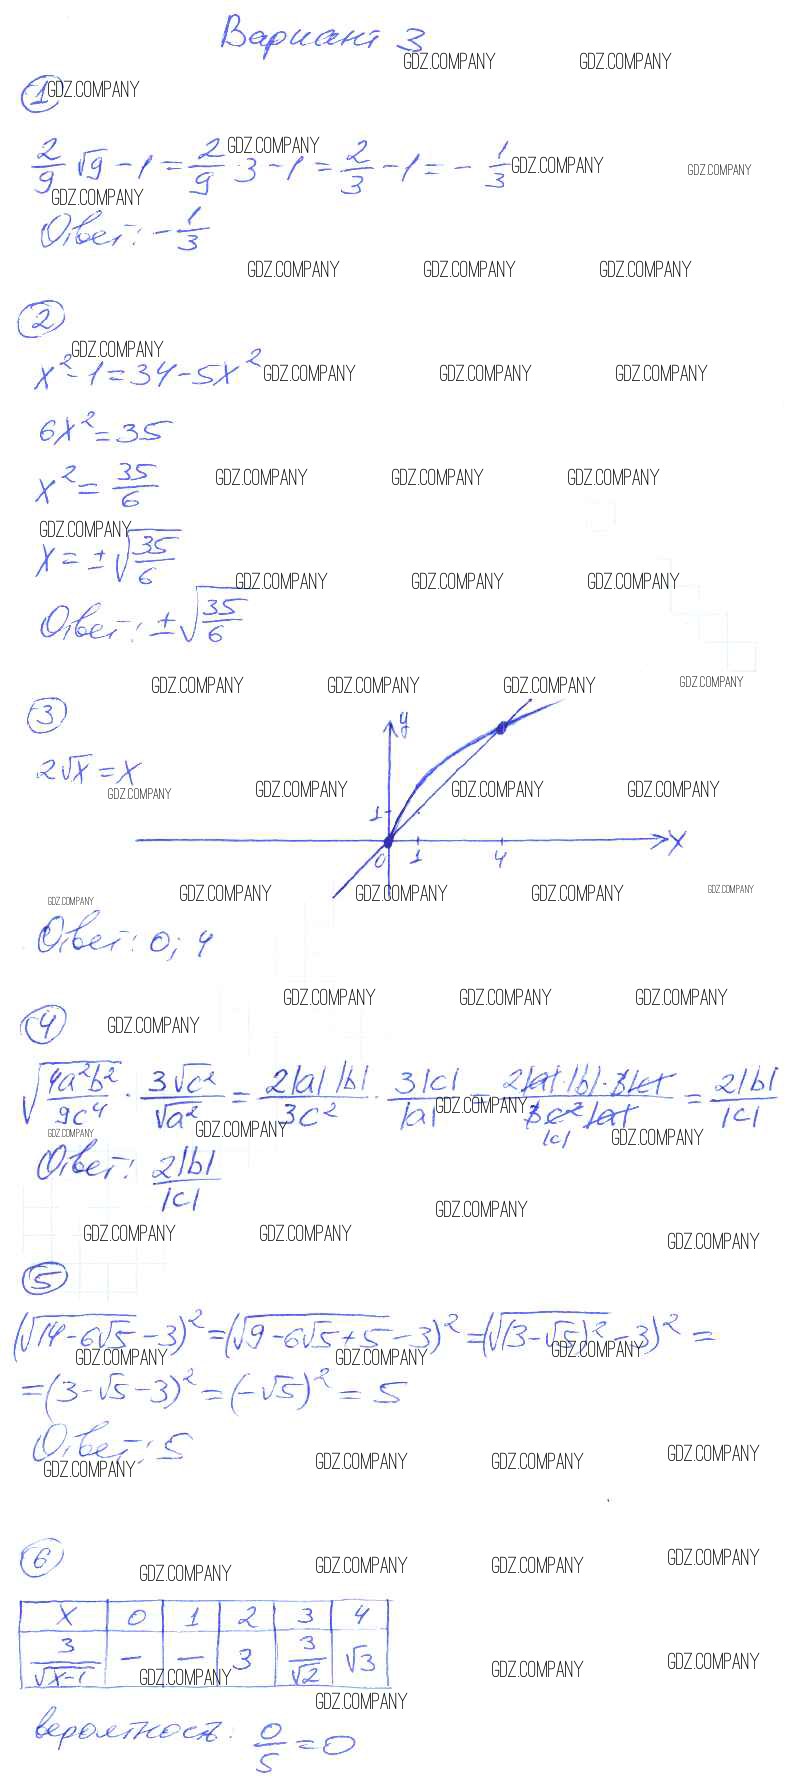 Вариант 3
GDZ.COMPANY GDZ.COMPANY
① GDZ.COMPANY
GDZ.COMPANY
2/9 √9 - 1 = 2/9 · 3 - 1 = 2/3 - 1 = - 1/3 GDZ.COMPANY GDZ.COMPANY
GDZ.COMPANY
Ответ: - 1/3
GDZ.COMPANY GDZ.COMPANY GDZ.COMPANY
②
GDZ.COMPANY
x² - 1 = 34 - 5x² GDZ.COMPANY GDZ.COMPANY GDZ.COMPANY
6x² = 35
x² = 35/6 GDZ.COMPANY GDZ.COMPANY GDZ.COMPANY
GDZ.COMPANY
x = ±√(35/6)
GDZ.COMPANY GDZ.COMPANY GDZ.COMPANY
Ответ: ±√(35/6)
GDZ.COMPANY GDZ.COMPANY GDZ.COMPANY GDZ.COMPANY
③ y
2√x = x
GDZ.COMPANY GDZ.COMPANY GDZ.COMPANY GDZ.COMPANY
1
x
0 1 4
GDZ.COMPANY GDZ.COMPANY GDZ.COMPANY GDZ.COMPANY GDZ.COMPANY
Ответ: 0; 4
GDZ.COMPANY GDZ.COMPANY GDZ.COMPANY
④ GDZ.COMPANY
√(4a²b²/9c⁴) · 3√c²/√a² = 2|a||b|/3c² · 3|c|/|a| = 2|a|·|b|·3|c|/3c²|a| = 2|b|/|c|
|c|
GDZ.COMPANY
GDZ.COMPANY GDZ.COMPANY GDZ.COMPANY
Ответ: 2|b|/|c|
GDZ.COMPANY
GDZ.COMPANY GDZ.COMPANY GDZ.COMPANY
⑤
(√(14-6√5) - 3)² = (√(9-6√5+5) - 3)² = (√((3-√5)²) - 3)² =
GDZ.COMPANY GDZ.COMPANY GDZ.COMPANY
= (3-√5-3)² = (-√5)² = 5
Ответ: 5
GDZ.COMPANY GDZ.COMPANY GDZ.COMPANY GDZ.COMPANY
⑥
GDZ.COMPANY GDZ.COMPANY GDZ.COMPANY GDZ.COMPANY
x 0 1 2 3 4
3/√(x-1) – – 3 3/√2 √3
GDZ.COMPANY GDZ.COMPANY GDZ.COMPANY
GDZ.COMPANY
вероятность: 0/5 = 0